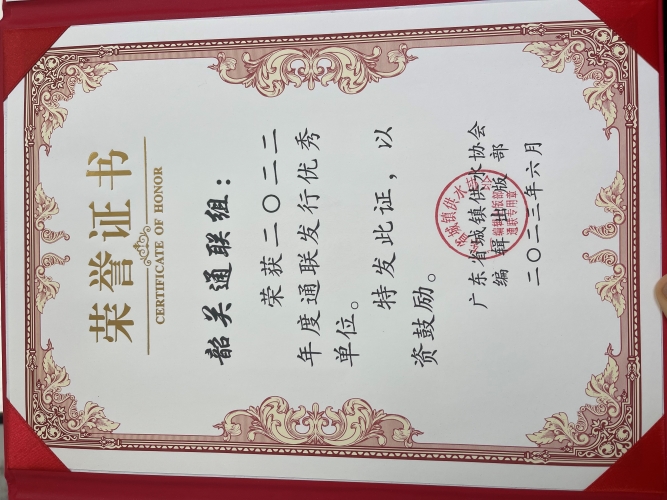 荣誉证书
CERTIFICATE OF HONOR
韶关通联组：
荣获二〇二二
年度通联发行优秀
单位。
特发此证，以
资鼓励。
广东省城镇供水协会
编辑出版部
二〇二三年六月
城镇供水
编辑出版部
通联专用章